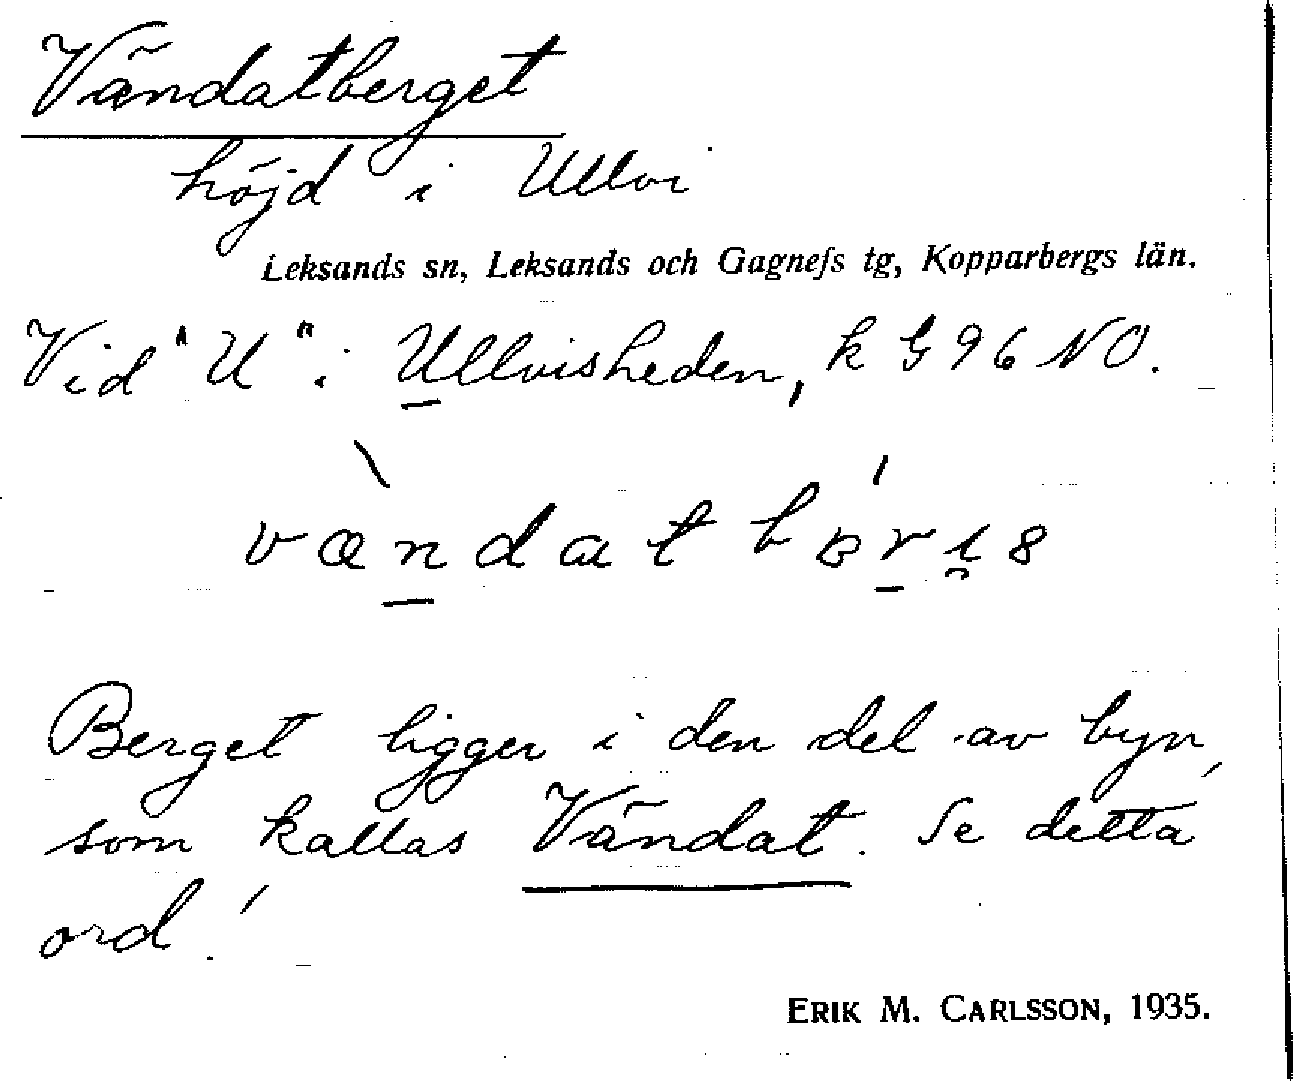 Vändatberget
höjd i Ullvi
Leksands sn, Leksands och Gagnefs tg, Kopparbergs län.
Vid "U": Ullvisheden, k G 96 NO.
Berget ligger i den del av byn,
som kallas Vändat. Se detta
ord!
ERIK M. CARLSSON, 1935.